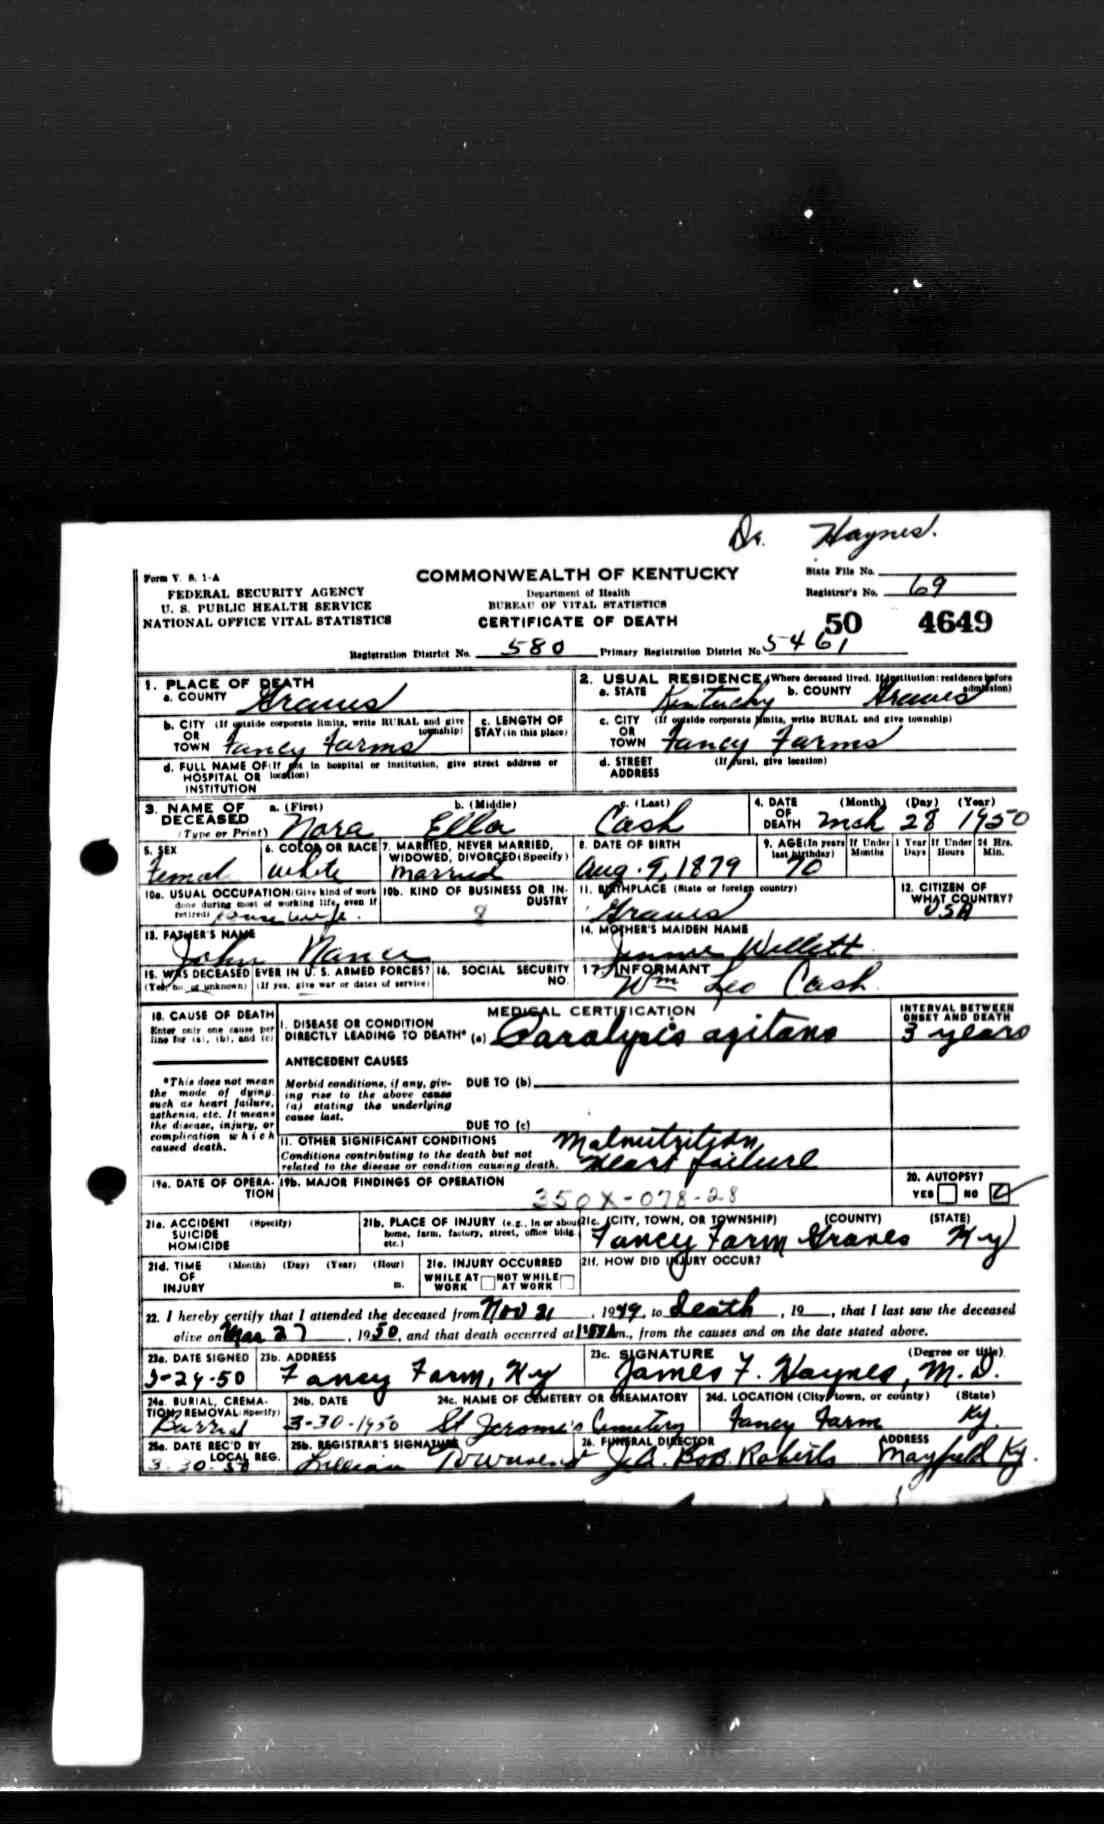 Dr. Haynes.
Form V. S. 1-A
COMMONWEALTH OF KENTUCKY
State File No.
FEDERAL SECURITY AGENCY
Department of Health
Registrar's No. 69
U. S. PUBLIC HEALTH SERVICE
BUREAU OF VITAL STATISTICS
NATIONAL OFFICE VITAL STATISTICS
CERTIFICATE OF DEATH
50 4649
Registration District No. 580 Primary Registration District No. 5461
1. PLACE OF DEATH
a. COUNTY Graves
2. USUAL RESIDENCE (Where deceased lived. If institution: residence before admission)
a. STATE Kentucky b. COUNTY Graves
b. CITY (If outside corporate limits, write RURAL and give township)
OR
TOWN Fancy Farms
c. LENGTH OF STAY (in this place)
c. CITY (If outside corporate limits, write RURAL and give township)
OR
TOWN Fancy Farms
d. FULL NAME OF (If not in hospital or institution, give street address or location)
HOSPITAL OR
INSTITUTION
d. STREET ADDRESS (If rural, give location)
3. NAME OF DECEASED (Type or Print)
a. (First) b. (Middle) c. (Last)
Nora Ella Cash
4. DATE OF DEATH (Month) (Day) (Year)
Mch 28 1950
5. SEX
Femal
6. COLOR OR RACE
White
7. MARRIED, NEVER MARRIED, WIDOWED, DIVORCED (Specify)
Married
8. DATE OF BIRTH
Aug. 9, 1879
9. AGE (In years last birthday) If Under 1 Year If Under 24 Hrs.
Months Days Hours Min.
70
10a. USUAL OCCUPATION (Give kind of work done during most of working life, even if retired)
House wife.
10b. KIND OF BUSINESS OR INDUSTRY
8
11. BIRTHPLACE (State or foreign country)
Graves
12. CITIZEN OF WHAT COUNTRY?
USA
13. FATHER'S NAME
John Nance
14. MOTHER'S MAIDEN NAME
Jennie Willett
15. WAS DECEASED EVER IN U. S. ARMED FORCES?
(Yes, no, or unknown) (If yes, give war or dates of service)
16. SOCIAL SECURITY NO.
17. INFORMANT
Wm Leo Cash
18. CAUSE OF DEATH
Enter only one cause per line for (a), (b), and (c)
MEDICAL CERTIFICATION
INTERVAL BETWEEN ONSET AND DEATH
I. DISEASE OR CONDITION DIRECTLY LEADING TO DEATH* (a) Paralysis agitans 3 years
ANTECEDENT CAUSES
*This does not mean the mode of dying, such as heart failure, asthenia, etc. It means the disease, injury, or complication which caused death.
Morbid conditions, if any, giving rise to the above cause (a) stating the underlying cause last.
DUE TO (b)
DUE TO (c)
II. OTHER SIGNIFICANT CONDITIONS
Conditions contributing to the death but not related to the disease or condition causing death.
Malnutrition,
Heart failure
19a. DATE OF OPERATION
19b. MAJOR FINDINGS OF OPERATION
350X-078-28
20. AUTOPSY?
YES NO
21a. ACCIDENT (Specify)
SUICIDE
HOMICIDE
21b. PLACE OF INJURY (e.g., in or about home, farm, factory, street, office bldg. etc.)
21c. (CITY, TOWN, OR TOWNSHIP) (COUNTY) (STATE)
Fancy Farm Graves Ky
21d. TIME OF INJURY (Month) (Day) (Year) (Hour) m.
21e. INJURY OCCURRED
WHILE AT WORK NOT WHILE AT WORK
21f. HOW DID INJURY OCCUR?
22. I hereby certify that I attended the deceased from Nov 21, 1949, to death, 19__, that I last saw the deceased
alive on Mar 27, 1950, and that death occurred at m., from the causes and on the date stated above.
23a. DATE SIGNED
3-29-50
23b. ADDRESS
Fancy Farm, Ky
23c. SIGNATURE (Degree or title)
James F. Haynes, M. D.
24a. BURIAL, CREMATION, REMOVAL (Specify)
Burial
24b. DATE
3-30-1950
24c. NAME OF CEMETERY OR CREAMATORY
St Jerome's Cemetery
24d. LOCATION (City, town, or county) (State)
Fancy Farm Ky.
25a. DATE REC'D BY LOCAL REG.
3-30-50
25b. REGISTRAR'S SIGNATURE
Lillian Townsend
26. FUNERAL DIRECTOR ADDRESS
Roberts Mayfield Ky.